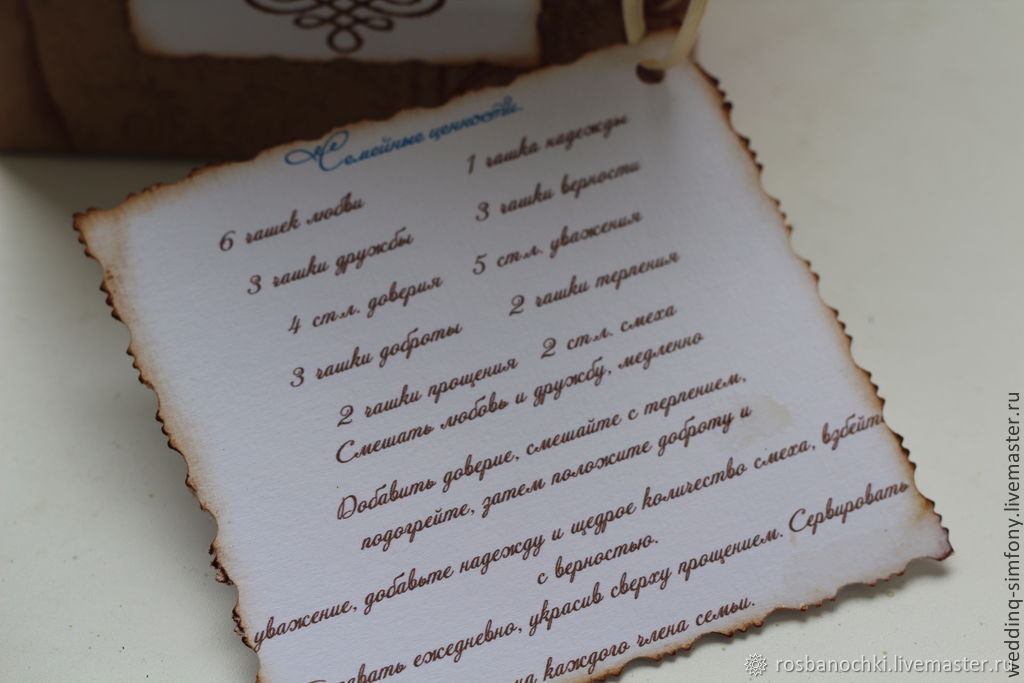 Семейные ценности.
6 чашек любви 1 чашка надежды
3 чашки дружбы 3 чашки верности
4 ст.л. доверия 5 ст.л. уважения
3 чашки доброты 2 чашки терпения
2 чашки прощения 2 ст.л. смеха
Смешать любовь и дружбу, медленно
Добавить доверие, смешайте с терпением,
подогрейте, затем положите доброту и
уважение, добавьте надежду и щедрое количество смеха, взбейте
с верностью.
ежедневно, украсив сверху прощением. Сервировать
каждого члена семьи.
rosbanochki.livemaster.ru
wedding-simfony.livemaster.ru